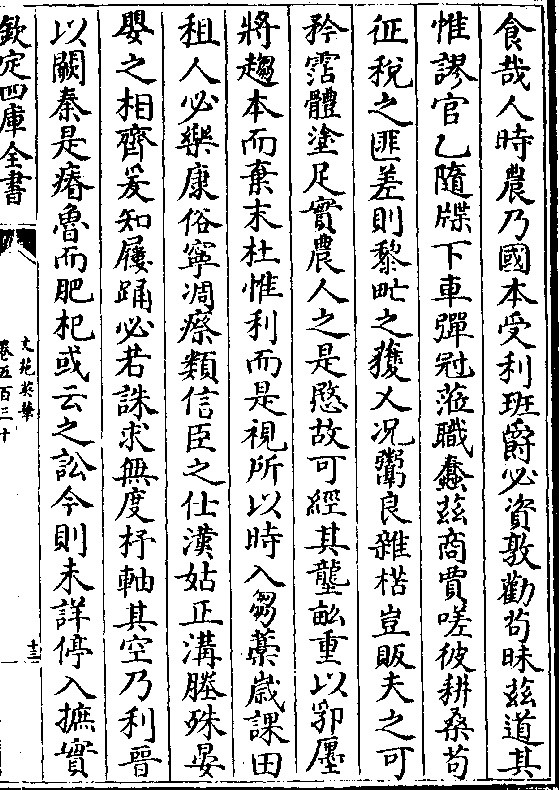 食哉人時農乃國本受利班爵必資敦勸茍昧兹道其
惟謬官乙隨牒下車彈冠蒞職蠢兹商賈嗟彼耕桑茍
征税之匪差則黎甿之獲乂況鬻良雜楛豈販夫之可
矜霑體塗足實農人之是愍故可經其壟畝重以郛廛
將趨本而棄末杜惟利而是視所以時入芻藁歲課田
租人必樂康俗寧凋瘵類信臣之仕漢姑正溝塍殊晏
嬰之相齊爰知屨踊必若誅求無度抒軸其空乃利晉
以闕秦是瘠魯而肥杞或云之訟今則未詳停入摭實
欽定四庫全書
文苑英華
卷五百三十
十三